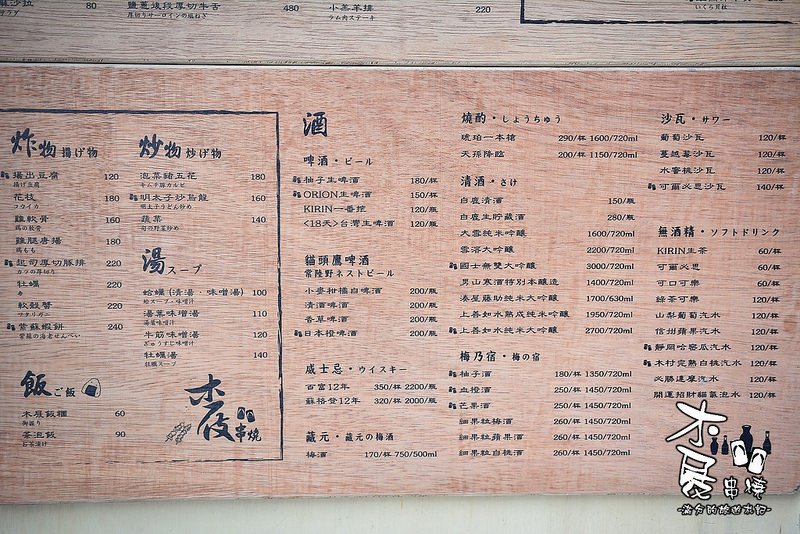 80
鹽蔥燒段厚切牛舌 480
厚切りサーロインの塩ねぎ
小羔羊排 220
ラム肉ステーキ
いくら貝柱
炸物 揚げ物
揚出豆腐 120
揚げ豆腐
花枝 180
フウイカ
雞軟骨 160
鶏の軟骨
雞腿唐揚 180
鶏もも
起司厚切豚排 220
カツの厚切り
牡蠣 220
軟殼蟹 220
ワタリガニ
紫蘇蝦餅 240
紫蘇の海老せんべい
飯 ご飯
木屐飯糰 60
御握り
茶泡飯 90
お茶漬け
炒物 炒げ物
泡菜豬五花 180
キムチ豚カルビ
明太子炒烏龍 160
明太子うどん炒め
蔬菜 140
旬の野菜炒め
湯 スープ
蛤蠣 (清湯・味噌湯) 100
蛤スープ・味噌汁
湯葉味噌湯 110
湯葉味噌汁
牛筋味噌湯 120
ぎゅうすじ味噌汁
牡蠣湯 140
牡蠣スープ
木屐串燒
酒
啤酒・ビール
柚子生啤酒 180/杯
ORION生啤酒 150/杯
KIRIN一番搾 120/瓶
<18天>台灣生啤酒 120/瓶
貓頭鷹啤酒
常陸野ネストビール
小麥柑橘白啤酒 200/瓶
清酒啤酒 200/瓶
香草啤酒 200/瓶
日本橙啤酒 200/瓶
威士忌・ウイスキー
百富12年 350/杯 2200/瓶
蘇格登12年 320/杯 2000/瓶
藏元・蔵元の梅酒
梅酒 170/杯 750/500ml
燒酌・しょうちゅう
琥珀一本槍 290/杯 1600/720ml
天孫降臨 200/杯 1150/720ml
清酒・さけ
白鹿清酒 150/瓶
白鹿生貯藏酒 280/瓶
大雪純米吟釀 1600/720ml
雪溶大吟釀 2200/720ml
國士無雙大吟釀 3000/720ml
男山寒酒特別本釀造 1400/720ml
湊屋藤助純米大吟釀 1700/630ml
上善如水熟成純米吟釀 1950/720ml
上善如水純米大吟釀 2700/720ml
梅乃宿・梅の宿
柚子酒 180/杯 1350/720ml
血橙酒 250/杯 1450/720ml
芒果酒 250/杯 1450/720ml
細果粒梅酒 260/杯 1450/720ml
細果粒蘋果酒 260/杯 1450/720ml
細果粒白桃酒 260/杯 1450/720ml
沙瓦・サワー
葡萄沙瓦 120/杯
蔓越莓沙瓦 120/杯
水蜜桃沙瓦 120/杯
可爾必思沙瓦 140/杯
無酒精・ソフトドリンク
KIRIN生茶 60/杯
可爾必思 60/杯
可口可樂 60/杯
綠茶可樂 120/杯
山梨葡萄汽水 120/杯
信州蘋果汽水 120/杯
靜岡哈密瓜汽水 120/杯
木村完熟白桃汽水 120/杯
必勝達摩汽水 120/杯
開運招財貓氣泡水 120/杯
木屐串燒